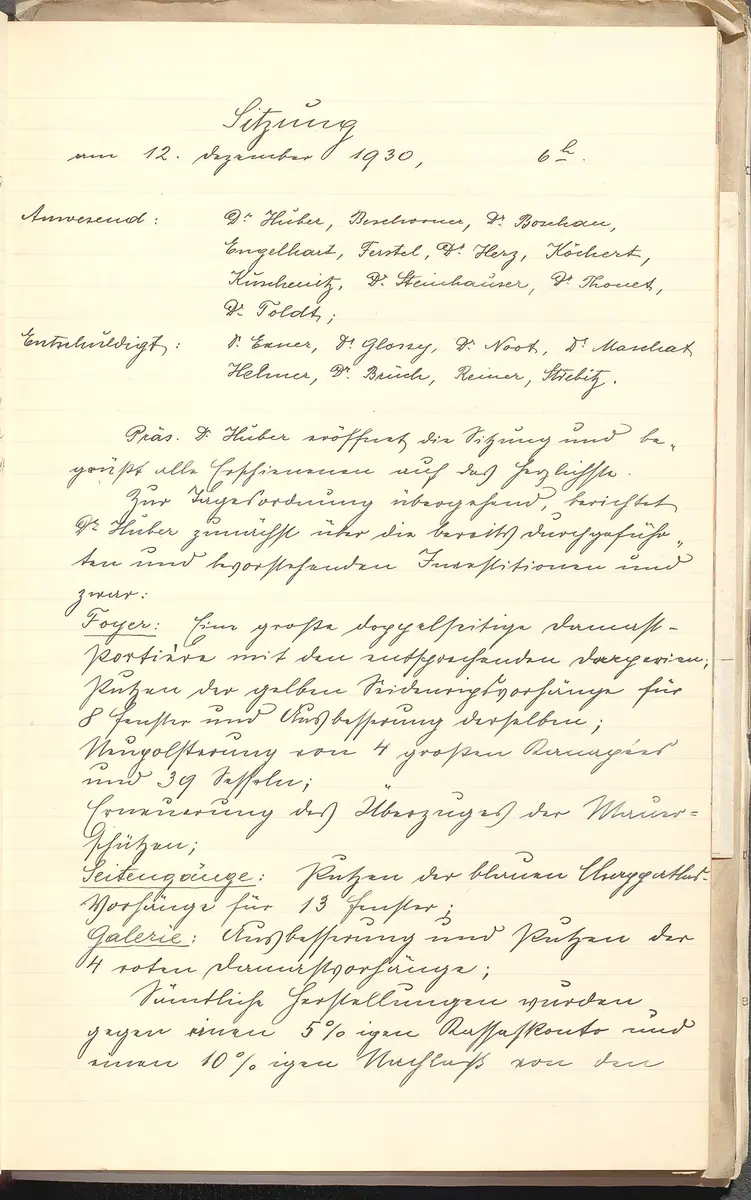 Sitzung
am 12. Dezember 1930, 6h.
Anwesend: Dr Huber, Beschorner, Dr Boschan,
Engelhart, Ferstel, Dr Herz, Köchert,
Kuschenitz, Dr Steinhauser, Dr Thonet,
Dr Toldt;
Entschuldigt: Dr Exner, Dr Glossy, Dr Noot, Dr Maschat
Helmer, Dr Bruch, Reiner, Stiebitz.
Präs. Dr Huber eröffnet die Sitzung und be„
grüßt alle Erschienenen auf das herzlichste.
Zur Tagesordnung übergehend, berichtet
Dr Huber zunächst über die bereits durchgeführ„
ten und bevorstehenden Investitionen und
zwar:
Foyer: Eine große doppelseitige Damast-
Portière mit den entsprechenden Darperien;
Putzen der gelben Seidenripsvorhänge für
8 Fenster und Ausbesserung derselben;
Neupolsterung von 4 großen Kanapées
und 39 Sesseln;
Erneuerung des Überzuges der Mauer=
schützen;
Seitengänge: Putzen der blauen
Vorhänge für 13 Fenster;
Galerie: Ausbesserung und Putzen der
4 roten Damastvorhänge;
Sämtliche Herstellungen wurden
gegen einen 5% igen Kassaskonto und
einen 10% igen Nachlaß von den